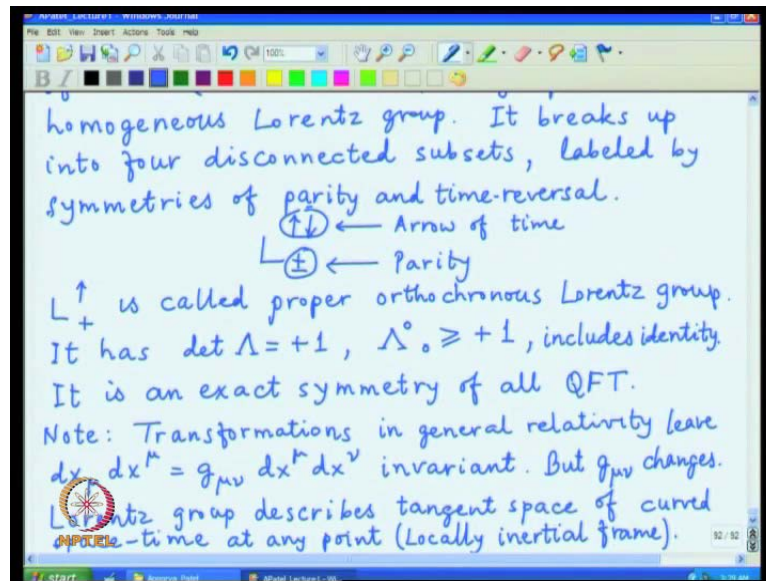 APatel_Lecture1 - Windows Journal
File Edit View Insert Actions Tools Help
100%
B I
homogeneous Lorentz group. It breaks up
into four disconnected subsets, labeled by
symmetries of parity and time-reversal.
↑↓ ← Arrow of time
L ± ← Parity
L↑₊ is called proper orthochronous Lorentz group.
It has det Λ = +1, Λ⁰₀ ⩾ +1, includes identity.
It is an exact symmetry of all QFT.
Note: Transformations in general relativity leave
dx_μ dx^μ = g_μν dx^μ dx^ν invariant. But g_μν changes.
Lorentz group describes tangent space of curved
space-time at any point (Locally inertial frame).
NPTEL
92/92
start
Apoorva Patel
APatel_Lecture1 - Wi...
3:29 AM